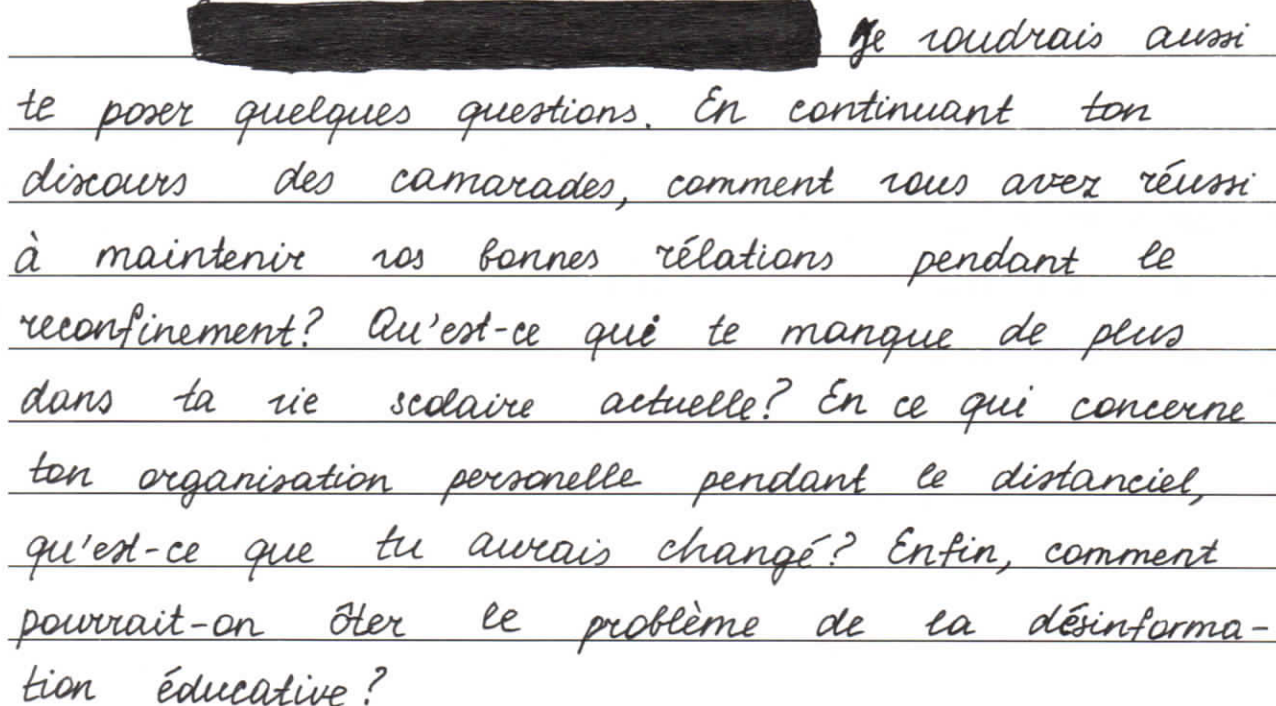 Je voudrais aussi
te poser quelques questions. En continuant ton
discours des camarades, comment vous avez réussi
à maintenir vos bonnes rélations pendant le
reconfinement? Qu'est-ce qui te manque de plus
dans ta vie scolaire actuelle? En ce qui concerne
ton organisation personelle pendant le distanciel,
qu'est-ce que tu aurais changé? Enfin, comment
pourrait-on ôter le problème de la désinforma-
tion éducative?